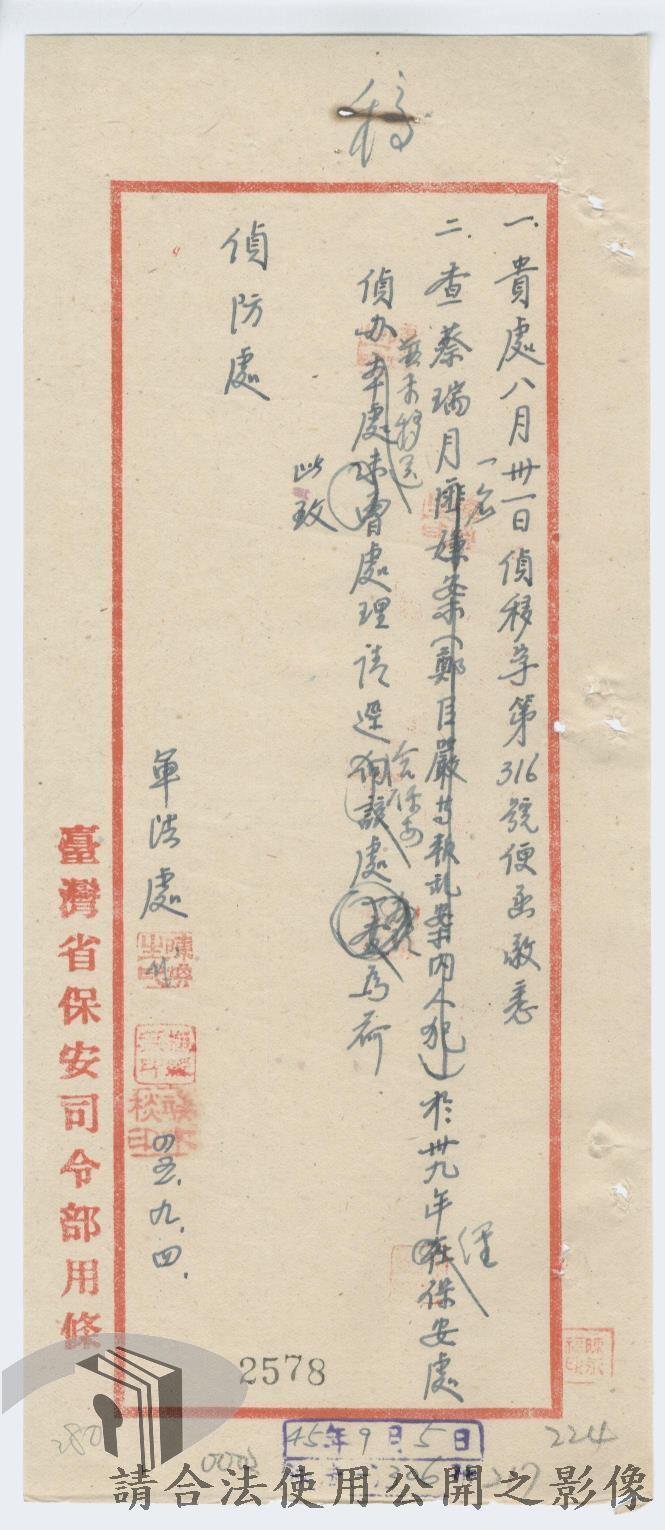 稿
一、貴處八月卅一日偵移字第316號便函敬悉
二、查蔡瑞月匪嫌案(鄭臣嚴等叛亂案內人犯)於卅九年在保安處
一名
經
偵办本處未曾處理請逕向該處查為荷
並未移送
洽保安
此致
偵防處
軍法處
四五、九、四、
臺灣省保安司令部用條
2578
45年9月5日
280
224
請合法使用公開之影像